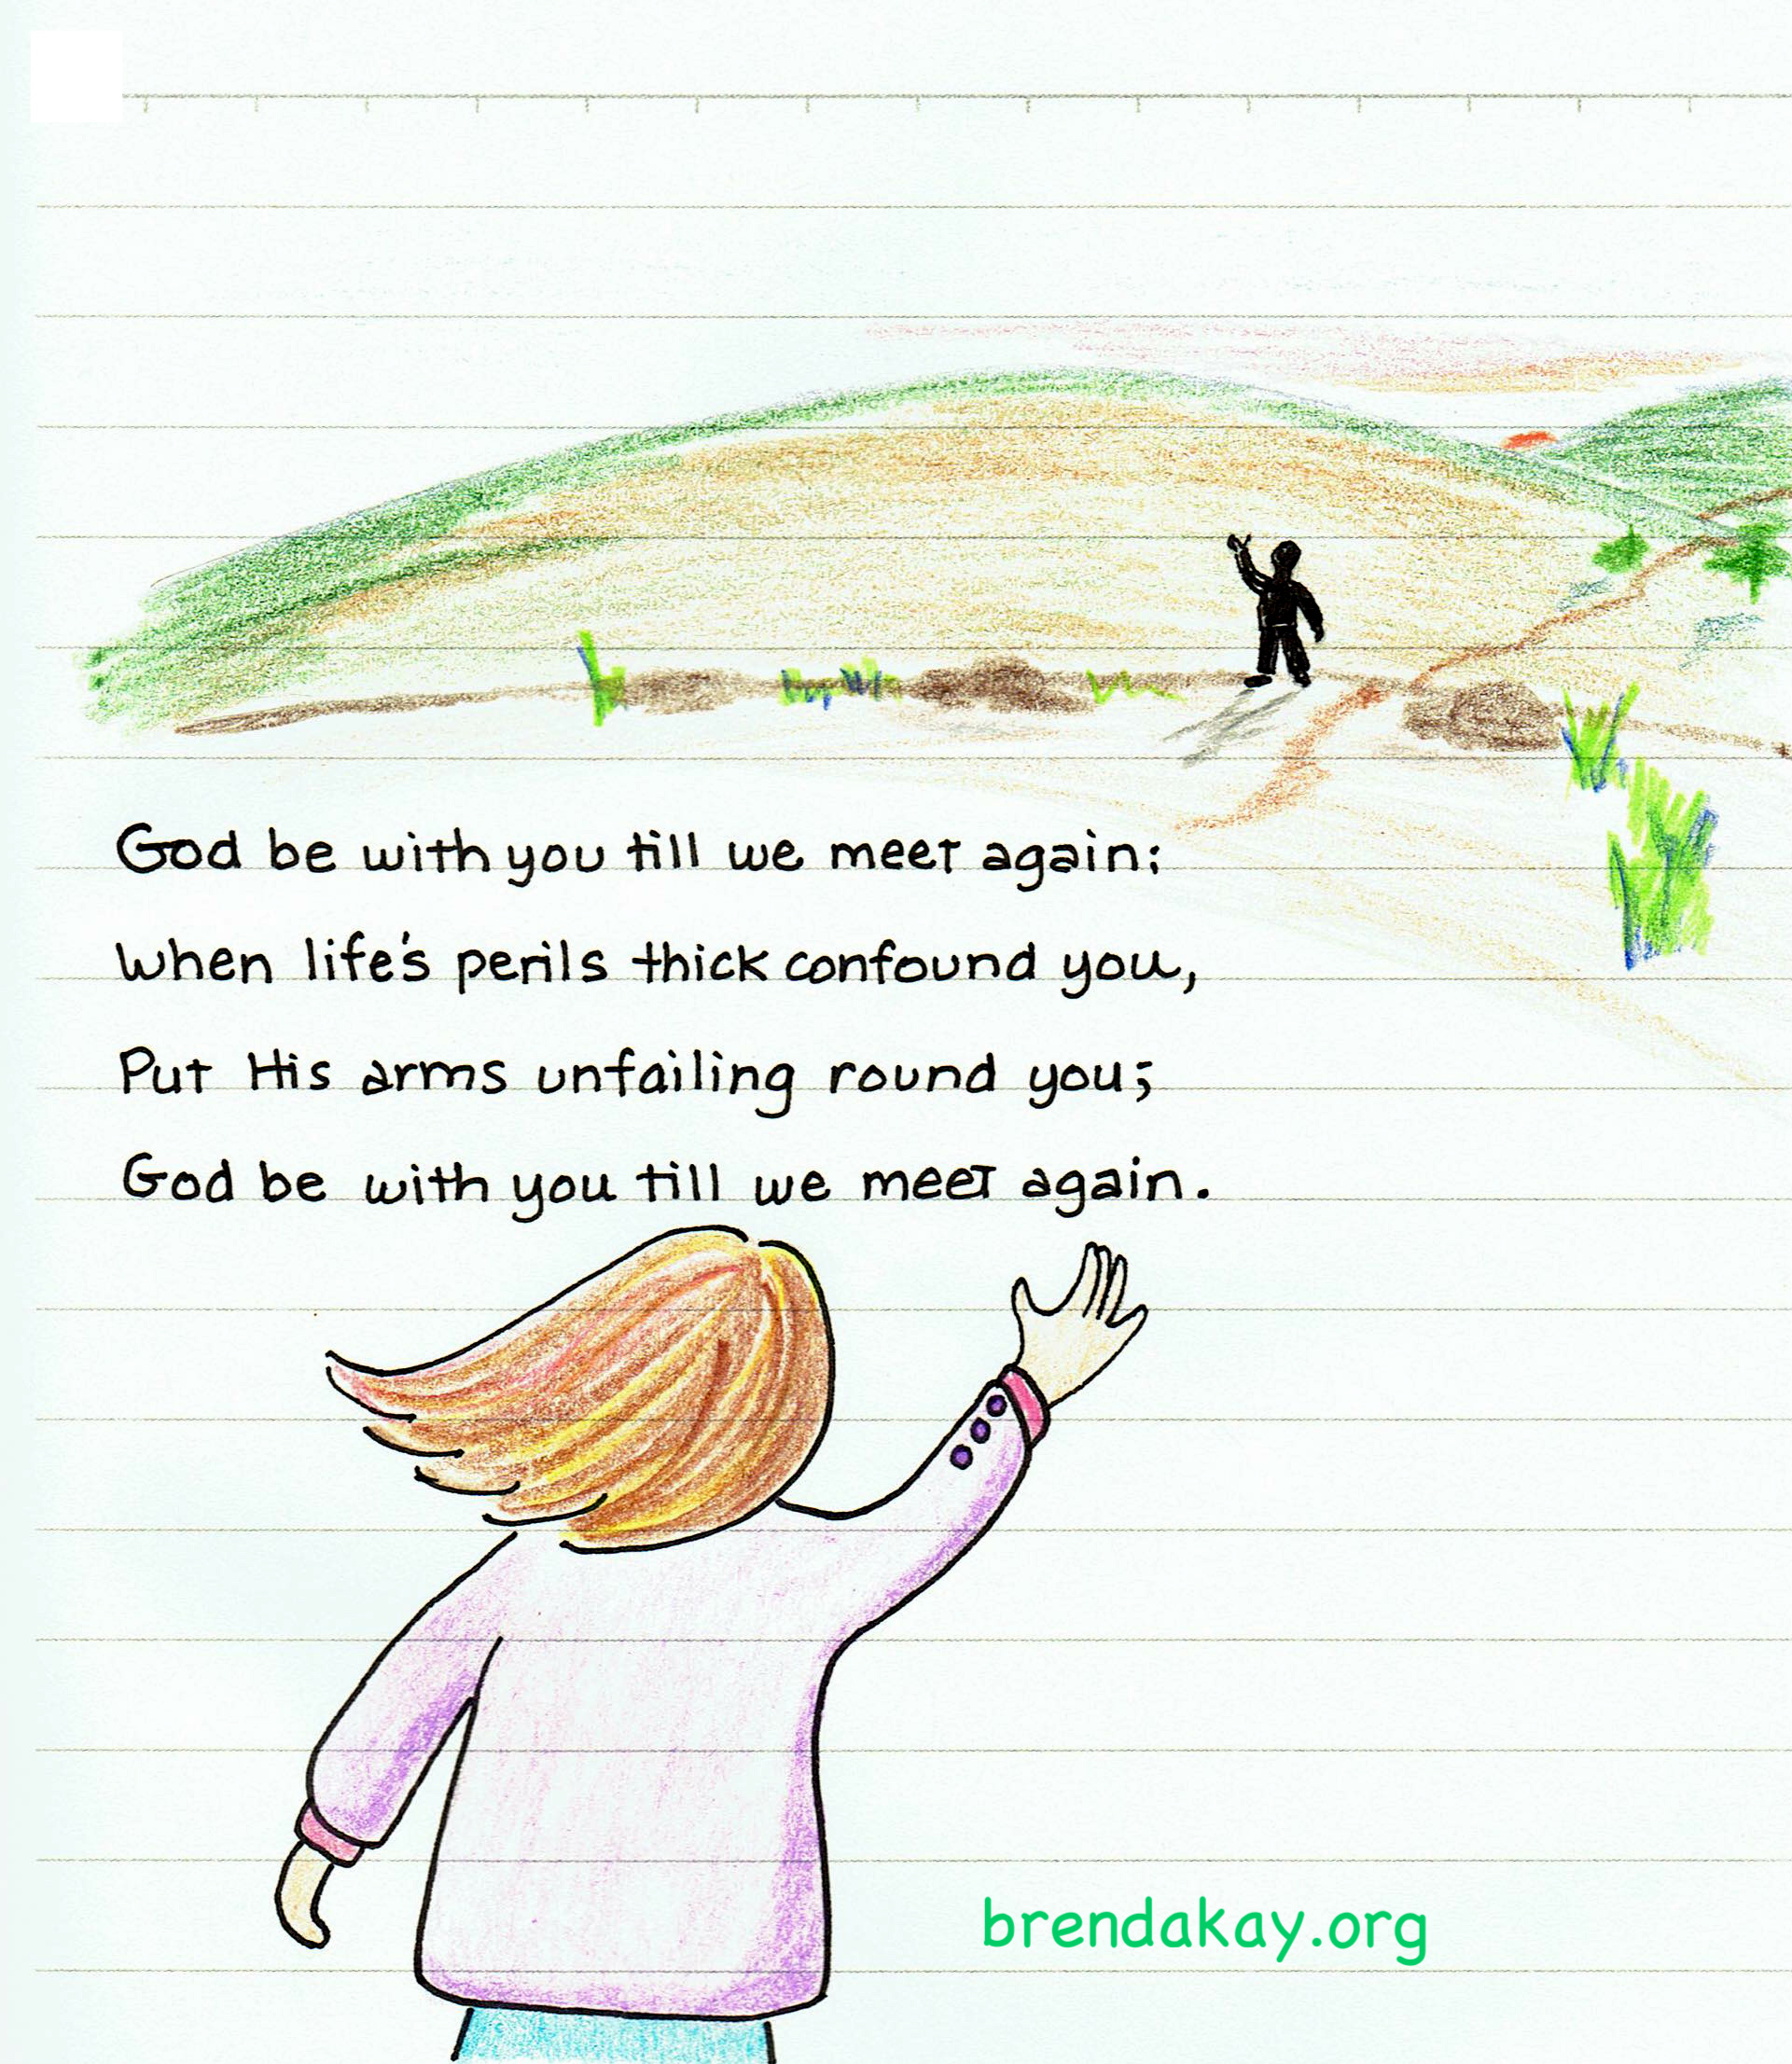 God be with you till we meet again;
When life's perils thick confound you,
Put His arms unfailing round you;
God be with you till we meet again.
brendakay.org